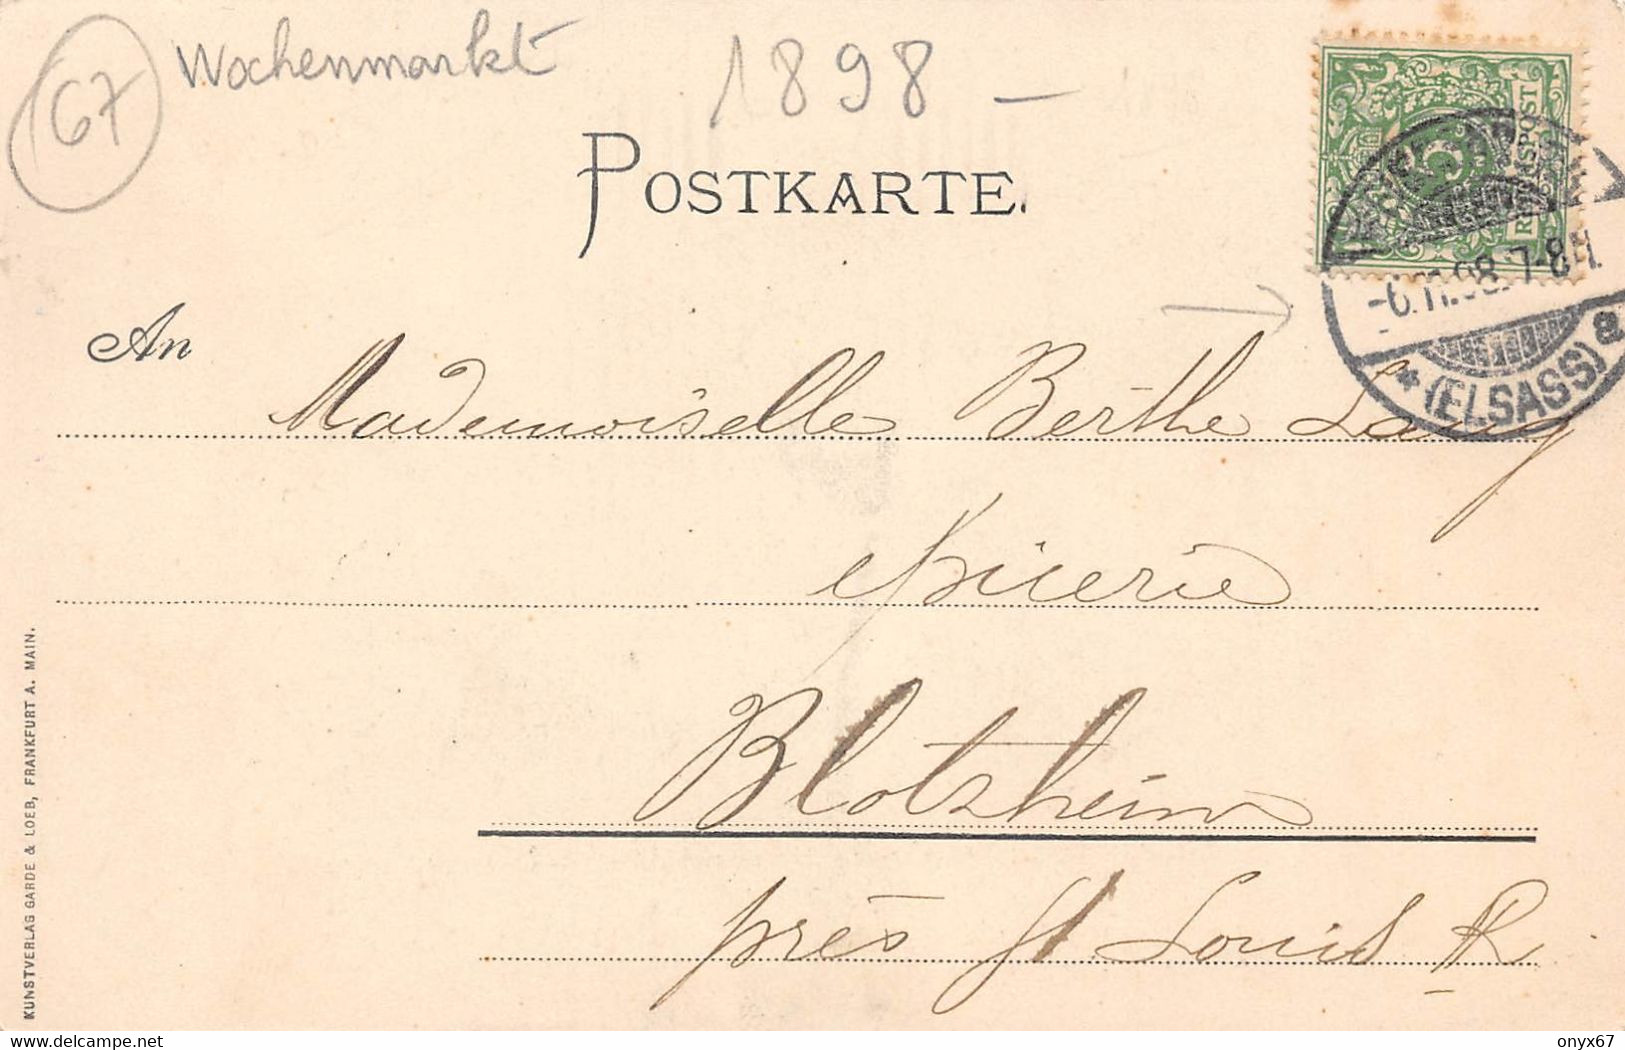 67
Wochenmarkt
1898 -
POSTKARTE.
5
REICHSPOST
-6.11.98. 7-8N.
a.
* (ELSASS)
An
Mademoiselle Berthe Lang
epicerie
Blotzheim
près St Louis
KUNSTVERLAG GARDE & LOEB, FRANKFURT A. MAIN.
delcampe.net
onyx67